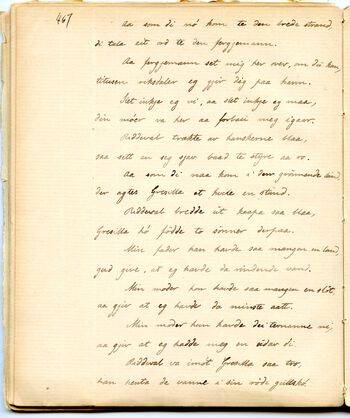 467
Aa som di nó kom te den brede strand,
di tala eit ord te den fergjemann.
Aa fergjemann set meg her over, om du kan,
titusen riksdaler eg gjev deg paa hann.
Slet inkje eg vi, aa slet inkje eg maa,
din móer va her aa forbaii meg igaar.
Riddeval trekte av hanskerne blaa,
saa sett en seg sjøv baad te styre aa ro.
Aa som di naa kom i den grönnende lund,
der agtes Gresilla at kvile en stund.
Riddeval bredde ut kaapa saa blaa,
Gresilla hó födde to sønner derpaa.
Min fader han havde saa mangen en land,
gud give, at eg havde da rindende vand.
Min moder hon havde saa mangen en slót,
aa gjev at eg havde da minste aatt.
Min moder hun havde dei ternanne ni,
aa gjev at eg hadde meg en udav di.
Riddeval va imót Gresilla saa tro,
han henta de vanne i sin röde gullskó.